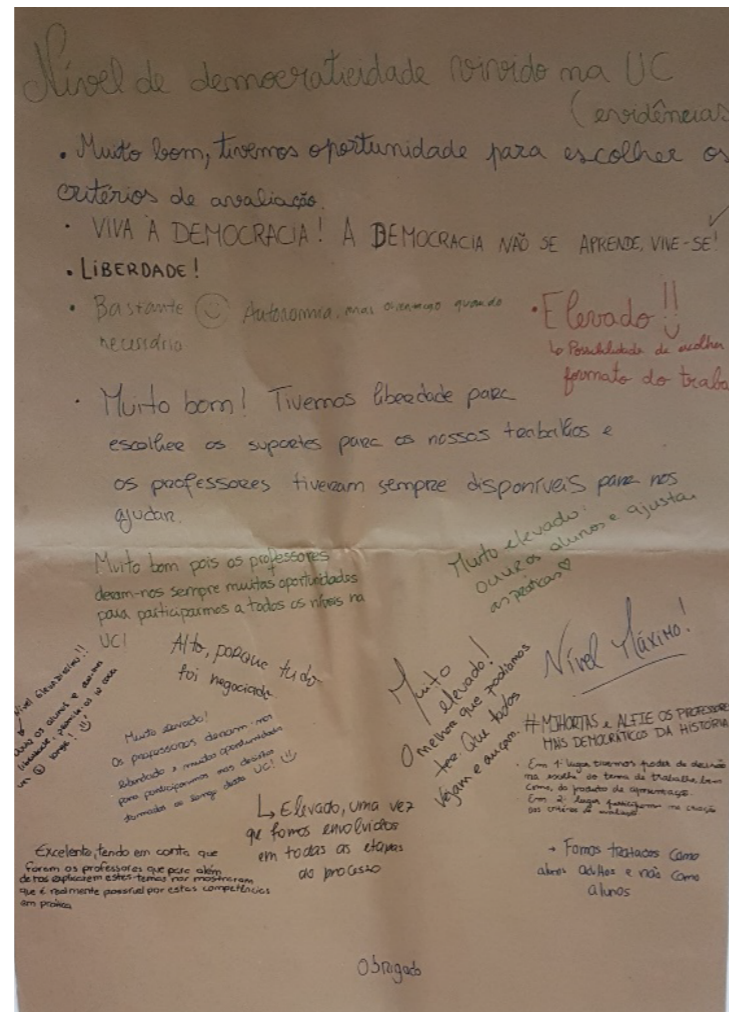 Nível de democraticidade vivido na UC
(evidências
• Muito bom, tivemos oportunidade para escolher os
critérios de avaliação.
• VIVA À DEMOCRACIA! A DEMOCRACIA NÃO SE APRENDE, VIVE-SE!
• LIBERDADE!
• Bastante Autonomia, mas orientação quando
necessário
• Elevado!!
↳ Possibilidade de escolher
formato do traba
• Muito bom! Tivemos liberdade para
escolher os suportes para os nossos trabalhos e
os professores tiveram sempre disponíveis para nos
ajudar.
Muito bom pois os professores
deram-nos sempre muitas oportunidades
para participarmos a todos os níveis na
UC!
Muito elevado:
ouvir os alunos e ajustar
as práticas ♡
Alto, porque tudo
foi negociado
Nível Elevadíssimo!!
os alunos e
liberdade,
Muito elevado!
Os professores deram-nos
liberdade e muitas oportunidades
para participarmos nas decisões
tomadas ao longo desta UC!
Muito
elevado!
O melhor que podíamos
ter. Que todos
vejam e ouçam.
Nível Máximo!
#MIHORTAS e ALFIE OS PROFESSORES
MAIS DEMOCRÁTICOS DA HISTÓRIA
• Em 1º lugar tivemos poder de decisão
na escolha do tema de trabalho, bem
como, do produto de apresentação.
Em 2º lugar participamos na criação
dos critérios de avaliação
↳ Elevado, uma vez
que fomos envolvidos
em todas as etapas
do processo
Excelente, tendo em conta que
foram os professores que para além
de nos explicarem estes temas nos mostraram
que é realmente possível pôr estas competências
em prática
→ Fomos tratados como
alunos adultos e não como
alunos
Obrigado